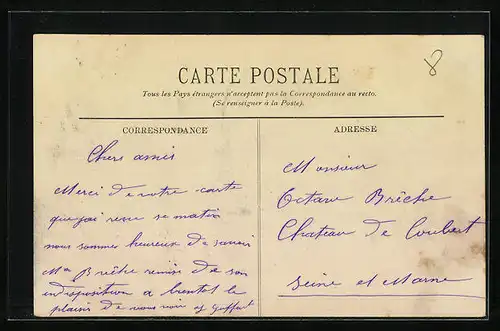 CARTE POSTALE
Tous les Pays étrangers n'acceptent pas la Correspondance au recto.
(Se renseigner à la Poste).
CORRESPONDANCE
Chers amis
Merci de votre carte
que j'ai reçu se matin
nous sommes heureux de savoir
Mme Brêche remis de son
indisposition a bientot le
plaisir de vous voir
ADRESSE
Monsieur
Octave Brêche
Chateau de Coubert
Seine et Marne